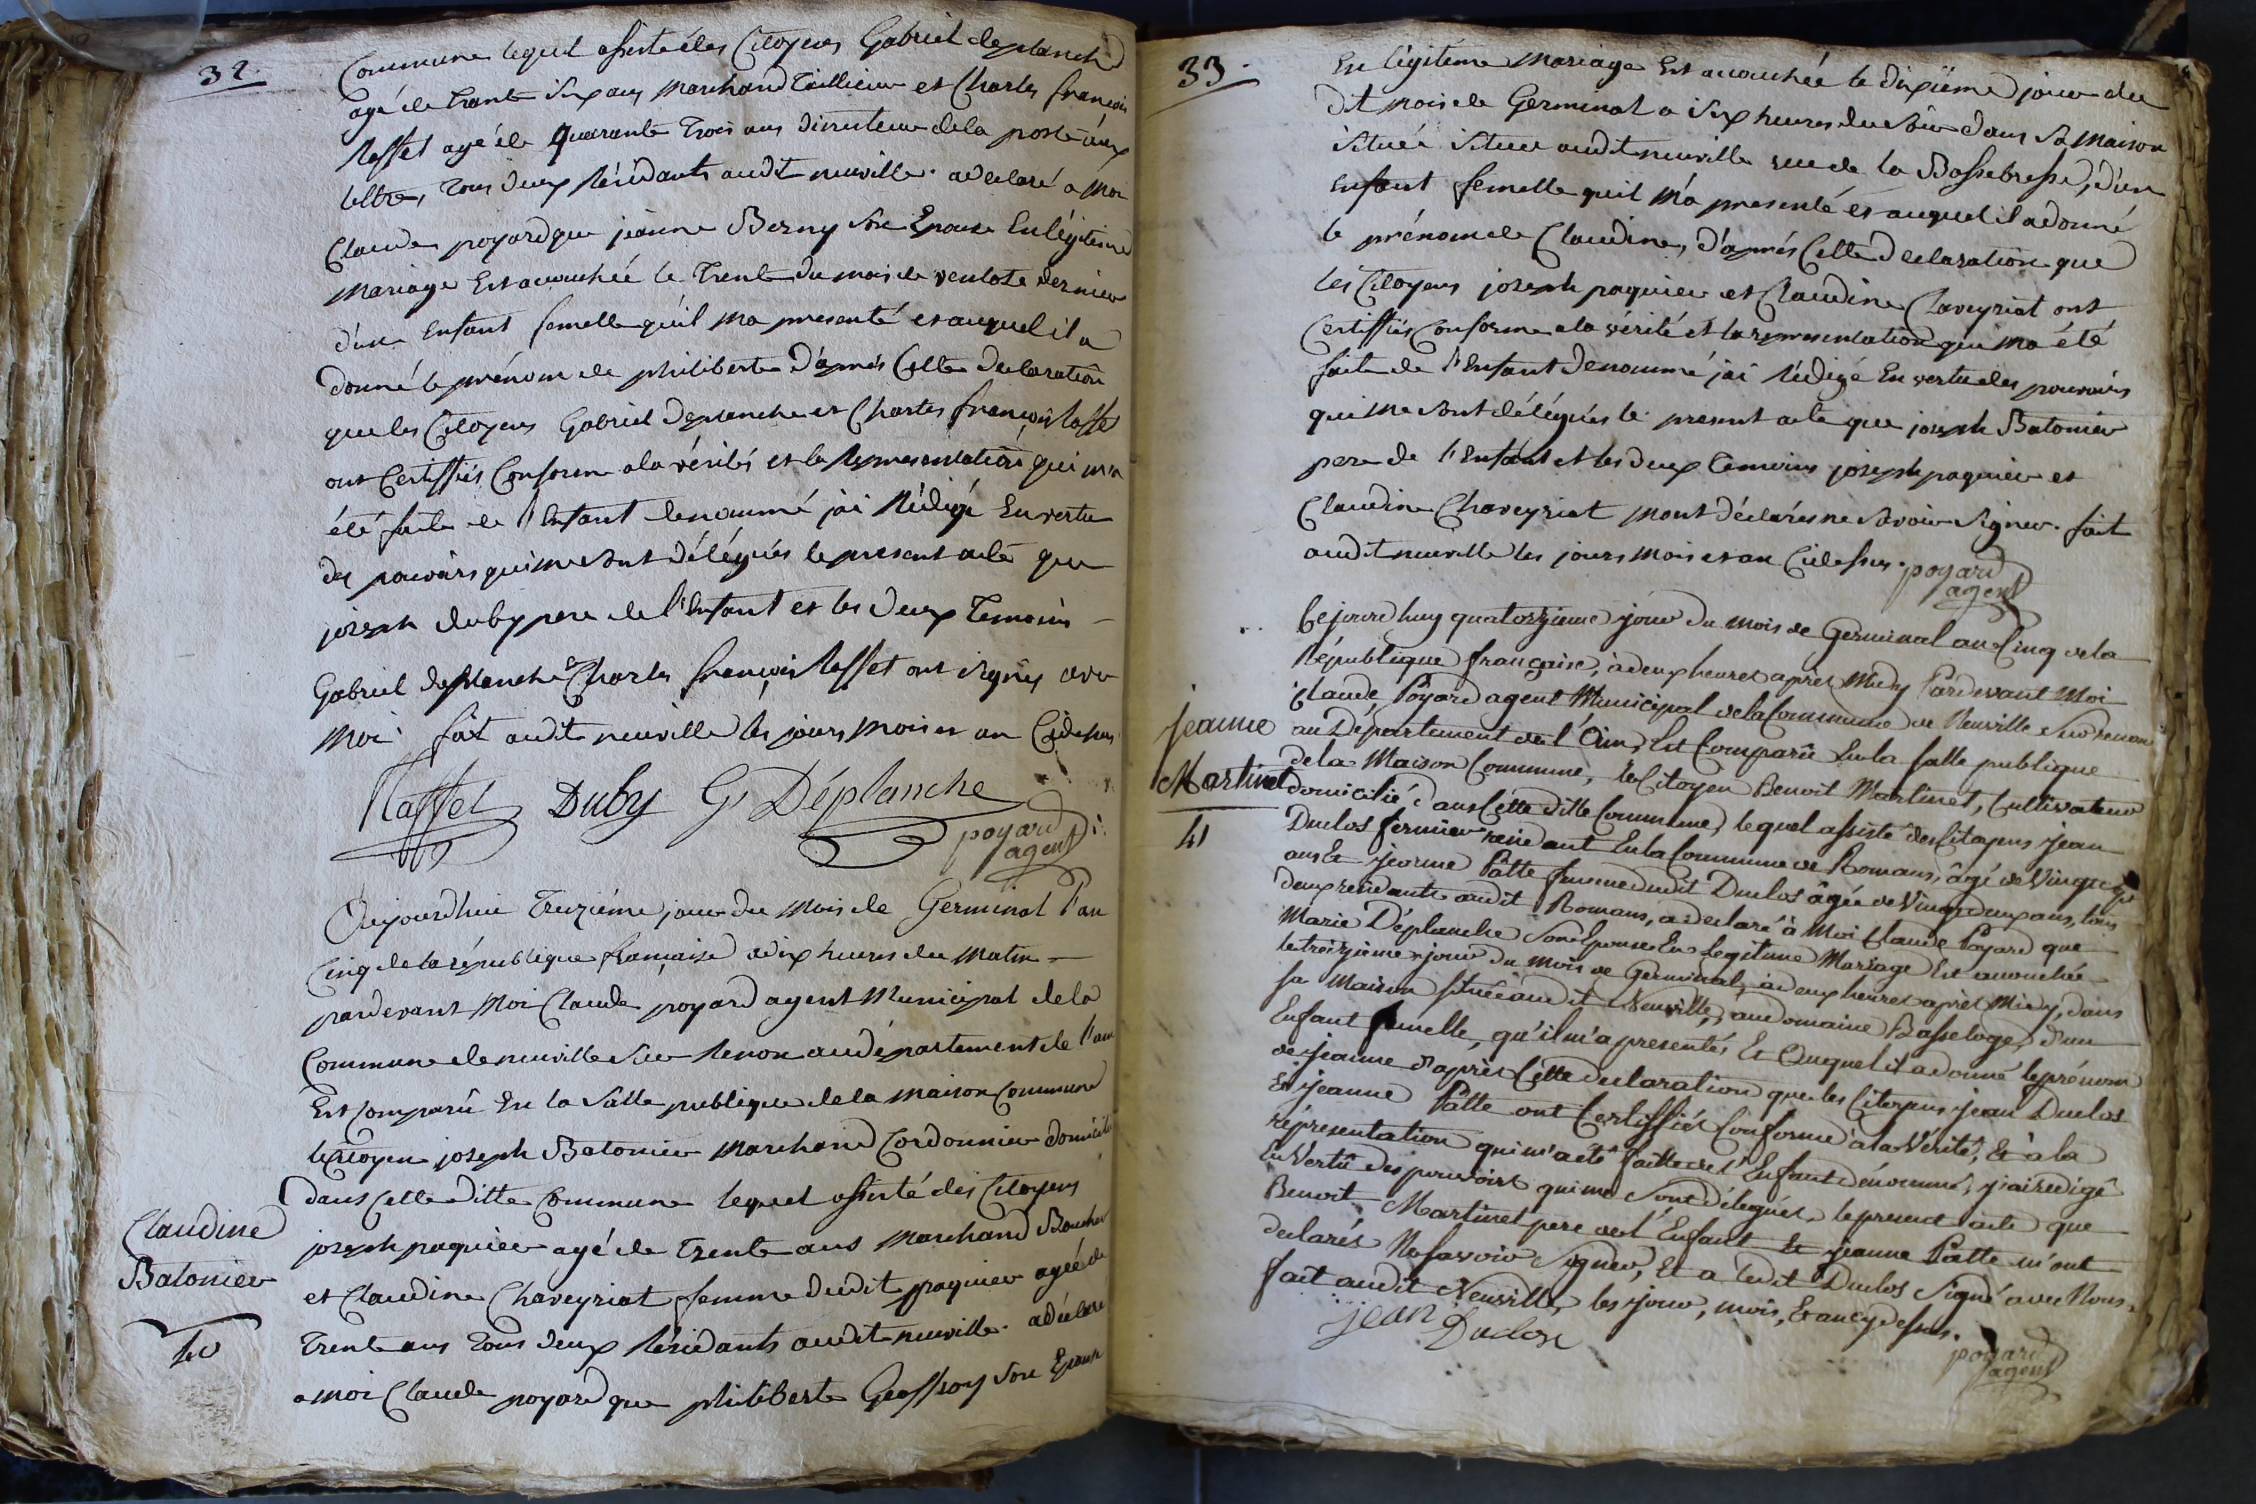 32.
Commune lequel assisté des Citoyens Gabriel deplanche
agé de Trante six ans Marchand Taillieur et Charles françois
Raffet agé de Quarante Trois ans directeur de la poste aux
lettre, Tous deux Résidants audit neuville. a declaré a Moi
Claude poyard que jeanne Berny Son Epouse En légitime
Mariage Est accouchée le Trente du mois de ventose dernier
d'un Enfant femelle qu'il ma presenté et auquel il a
donné le prénom de philiberte d'aprés Cette declaration
que les Citoyens Gabriel deplanche et Charles françois Raffet
ont Certiffiés Conforme a la vérités et la Representation qui m'a
été faite de l'Enfant denommé j'ai Rédigé En vertu
des pouvoirs qui me sont délégués le present acte que
joseph duby pere de l'Enfant et les deux Temoins
Gabriel deplanche & Charles françois Raffet ont signés avec
Moi. fait audit neuville les jours Mois et an Cidessus
Raffet Duby G Déplanche
poyard
agent
Aujourdhui Treziéme jour du Mois de Germinal l'an
Cinq de la république française a dix heures du matin
pardevant Moi Claude poyard agent Municipal de la
Commune de neuville Sur Renon au département de l'ain
Est Comparû En la Salle publique de la Maison Commune
le Citoyen joseph Batonier Marchand Cordonnier domicilié
dans Cette ditte Commune lequel assisté des Citoyens
joseph paquier agé de Trente ans Marchand Boucher
et Claudine Chaveyriat femme dudit paquier agée de
Trente ans Tous deux Résidants audit neuville. a déclaré
a moi Claude poyard que philiberte Geoffroy Son Epouse
Claudine
Batonier
40
33.
En légitime Mariage Est accouchée le dixiéme jour du
dit mois de Germinal a Six heures du Soir dans Sa Maison
Située Situee audit neuville rue de la Bassebresse, d'un
Enfant femelle quil M'a presenté et auquel il a donné
le prénom de Claudine, d'aprés Cette declaration que
les Citoyens joseph paquier et Claudine Claveyriat ont
Certiffiés Conforme a la vérité et la representation qui ma été
faite de l'Enfant denommé j'ai Rédigé En vertu des pouvoirs
qui me sont délégués le present acte que joseph Batonier
pere de l'Enfant et les deux Temoins joseph paquier et
Claudine Chaveyriat Mont déclarés ne Savoir Signer. fait
audit neuville les jours Mois et an Cidessus.
poyard
agent
Cejourd huy quatorzieme jour du mois de Germinal an Cinq de la
République française, à deux heures après Midy Pardevant Moi
Claude Poyard agent Municipal de la Commune de Neuville Sur renon
au Département de l'Ain, Est Comparû En la salle publique
de la Maison Commune, le Citoyen Benoit Martinet, Cultivateur
domicilié dans Cette ditte Commune, lequel assisté des Citoyens jean
Duclos fermier residant En la Commune de Romans, âgé de Vingt
ans Et jeanne Patte femme dudit Duclos âgée de Vingt deux ans, tous
deux residants audit Romans, a declaré à Moi Claude Poyard que
Marie Déplanche Son Epouse En Legitime Mariage Est accouchée
le treizieme jour du mois de Germinal, à deux heures après Midy, dans
sa Maison située audit Neuville, au domaine Basseloge, d'un
Enfant femelle, qu'il m'a presentés Et Auquel il a donné le prénom
de jeanne d'après Cette declaration que les Citoyens jean Duclos
Et jeanne Patte ont Certiffiés Conforme à la Vérité, Et à la
réprésentation qui m'a été faitte de l'Enfant dénommé, j'ai redigé
En Vertû des pouvoirs qui me Sont délegués, le present acte que
Benoit Martinet pere de l'Enfant Et jeanne Patte m'ont
declarés Ne savoir Signer, Et a ledit Duclos Signé avec Nous.
fait audit Neuville, les jour, mois, Et an cy dessus.
jean Duclos
poyard
agent
jeanne
Martinet
41